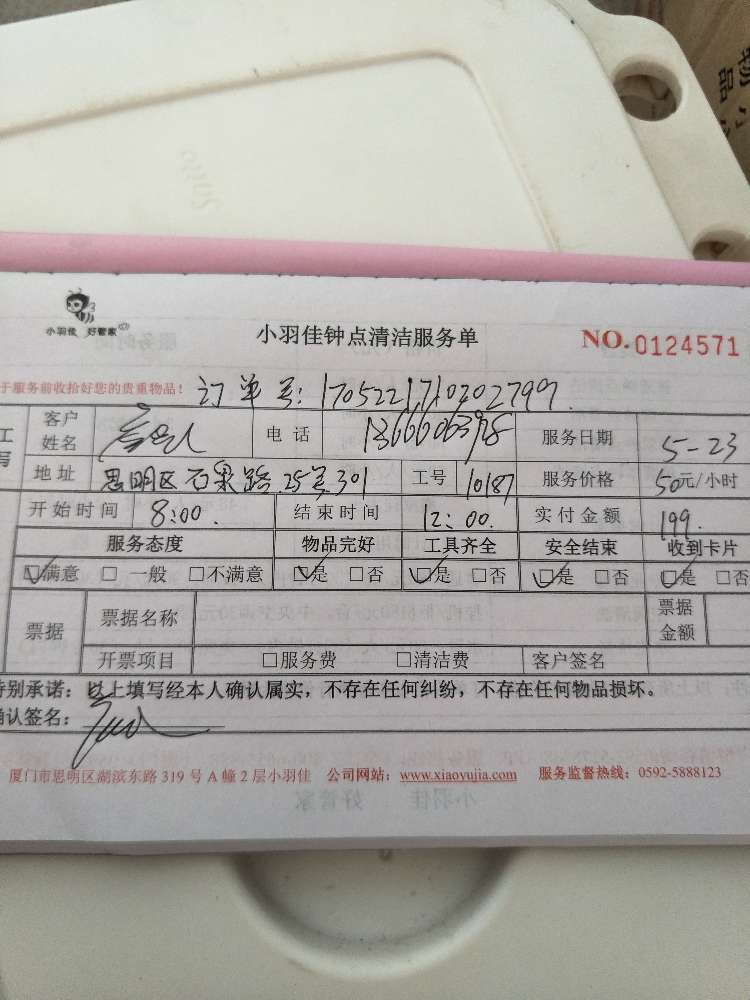 物
品
小羽佳 好管家
小羽佳钟点清洁服务单
NO.0124571
于服务前收拾好您的贵重物品! 订单号:
客户姓名 电话 服务日期 5-23
地址 思明区石泉路25号301 工号 10187 服务价格 50元/小时
开始时间 8:00. 结束时间 12:00. 实付金额 199.
服务态度 物品完好 工具齐全 安全结束 收到卡片
☑满意 □一般 □不满意 ☑是 □否 ☑是 □否 ☑是 □否 ☑是 □否
票据 票据名称 票据金额
开票项目 □服务费 □清洁费 客户签名
特别承诺：以上填写经本人确认属实，不存在任何纠纷，不存在任何物品损坏。
确认签名：
厦门市思明区湖滨东路 319 号 A 幢 2 层小羽佳 公司网站：www.xiaoyujia.com 服务监督热线：0592-5888123